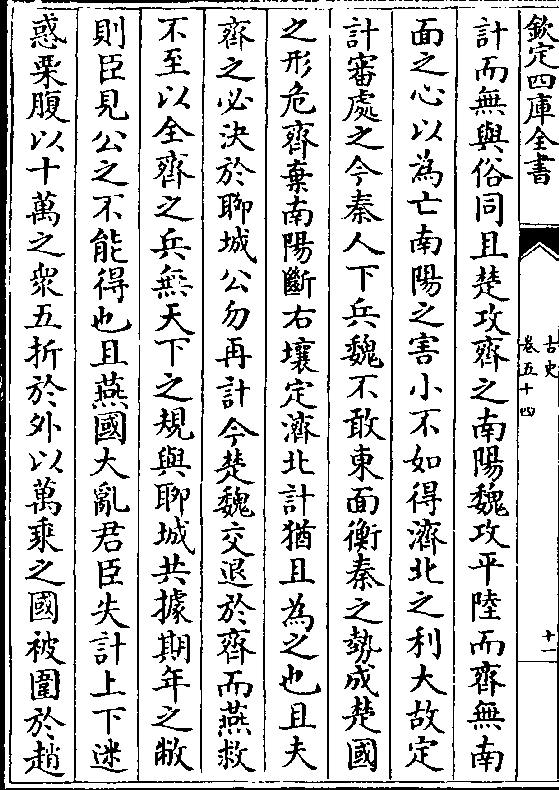 欽定四庫全書
古史
卷五十四
十一
計而無與俗同且楚攻齊之南陽魏攻平陸而齊無南
面之心以為亡南陽之害小不如得濟北之利大故定
計審處之今秦人下兵魏不敢東面衡秦之勢成楚國
之形危齊棄南陽斷右壤定濟北計猶且為之也且夫
齊之必決於聊城公勿再計今楚魏交退於齊而燕救
不至以全齊之兵無天下之規與聊城共據期年之敝
則臣見公之不能得也且燕國大亂君臣失計上下迷
惑栗腹以十萬之衆五折於外以萬乘之國被圍於趙